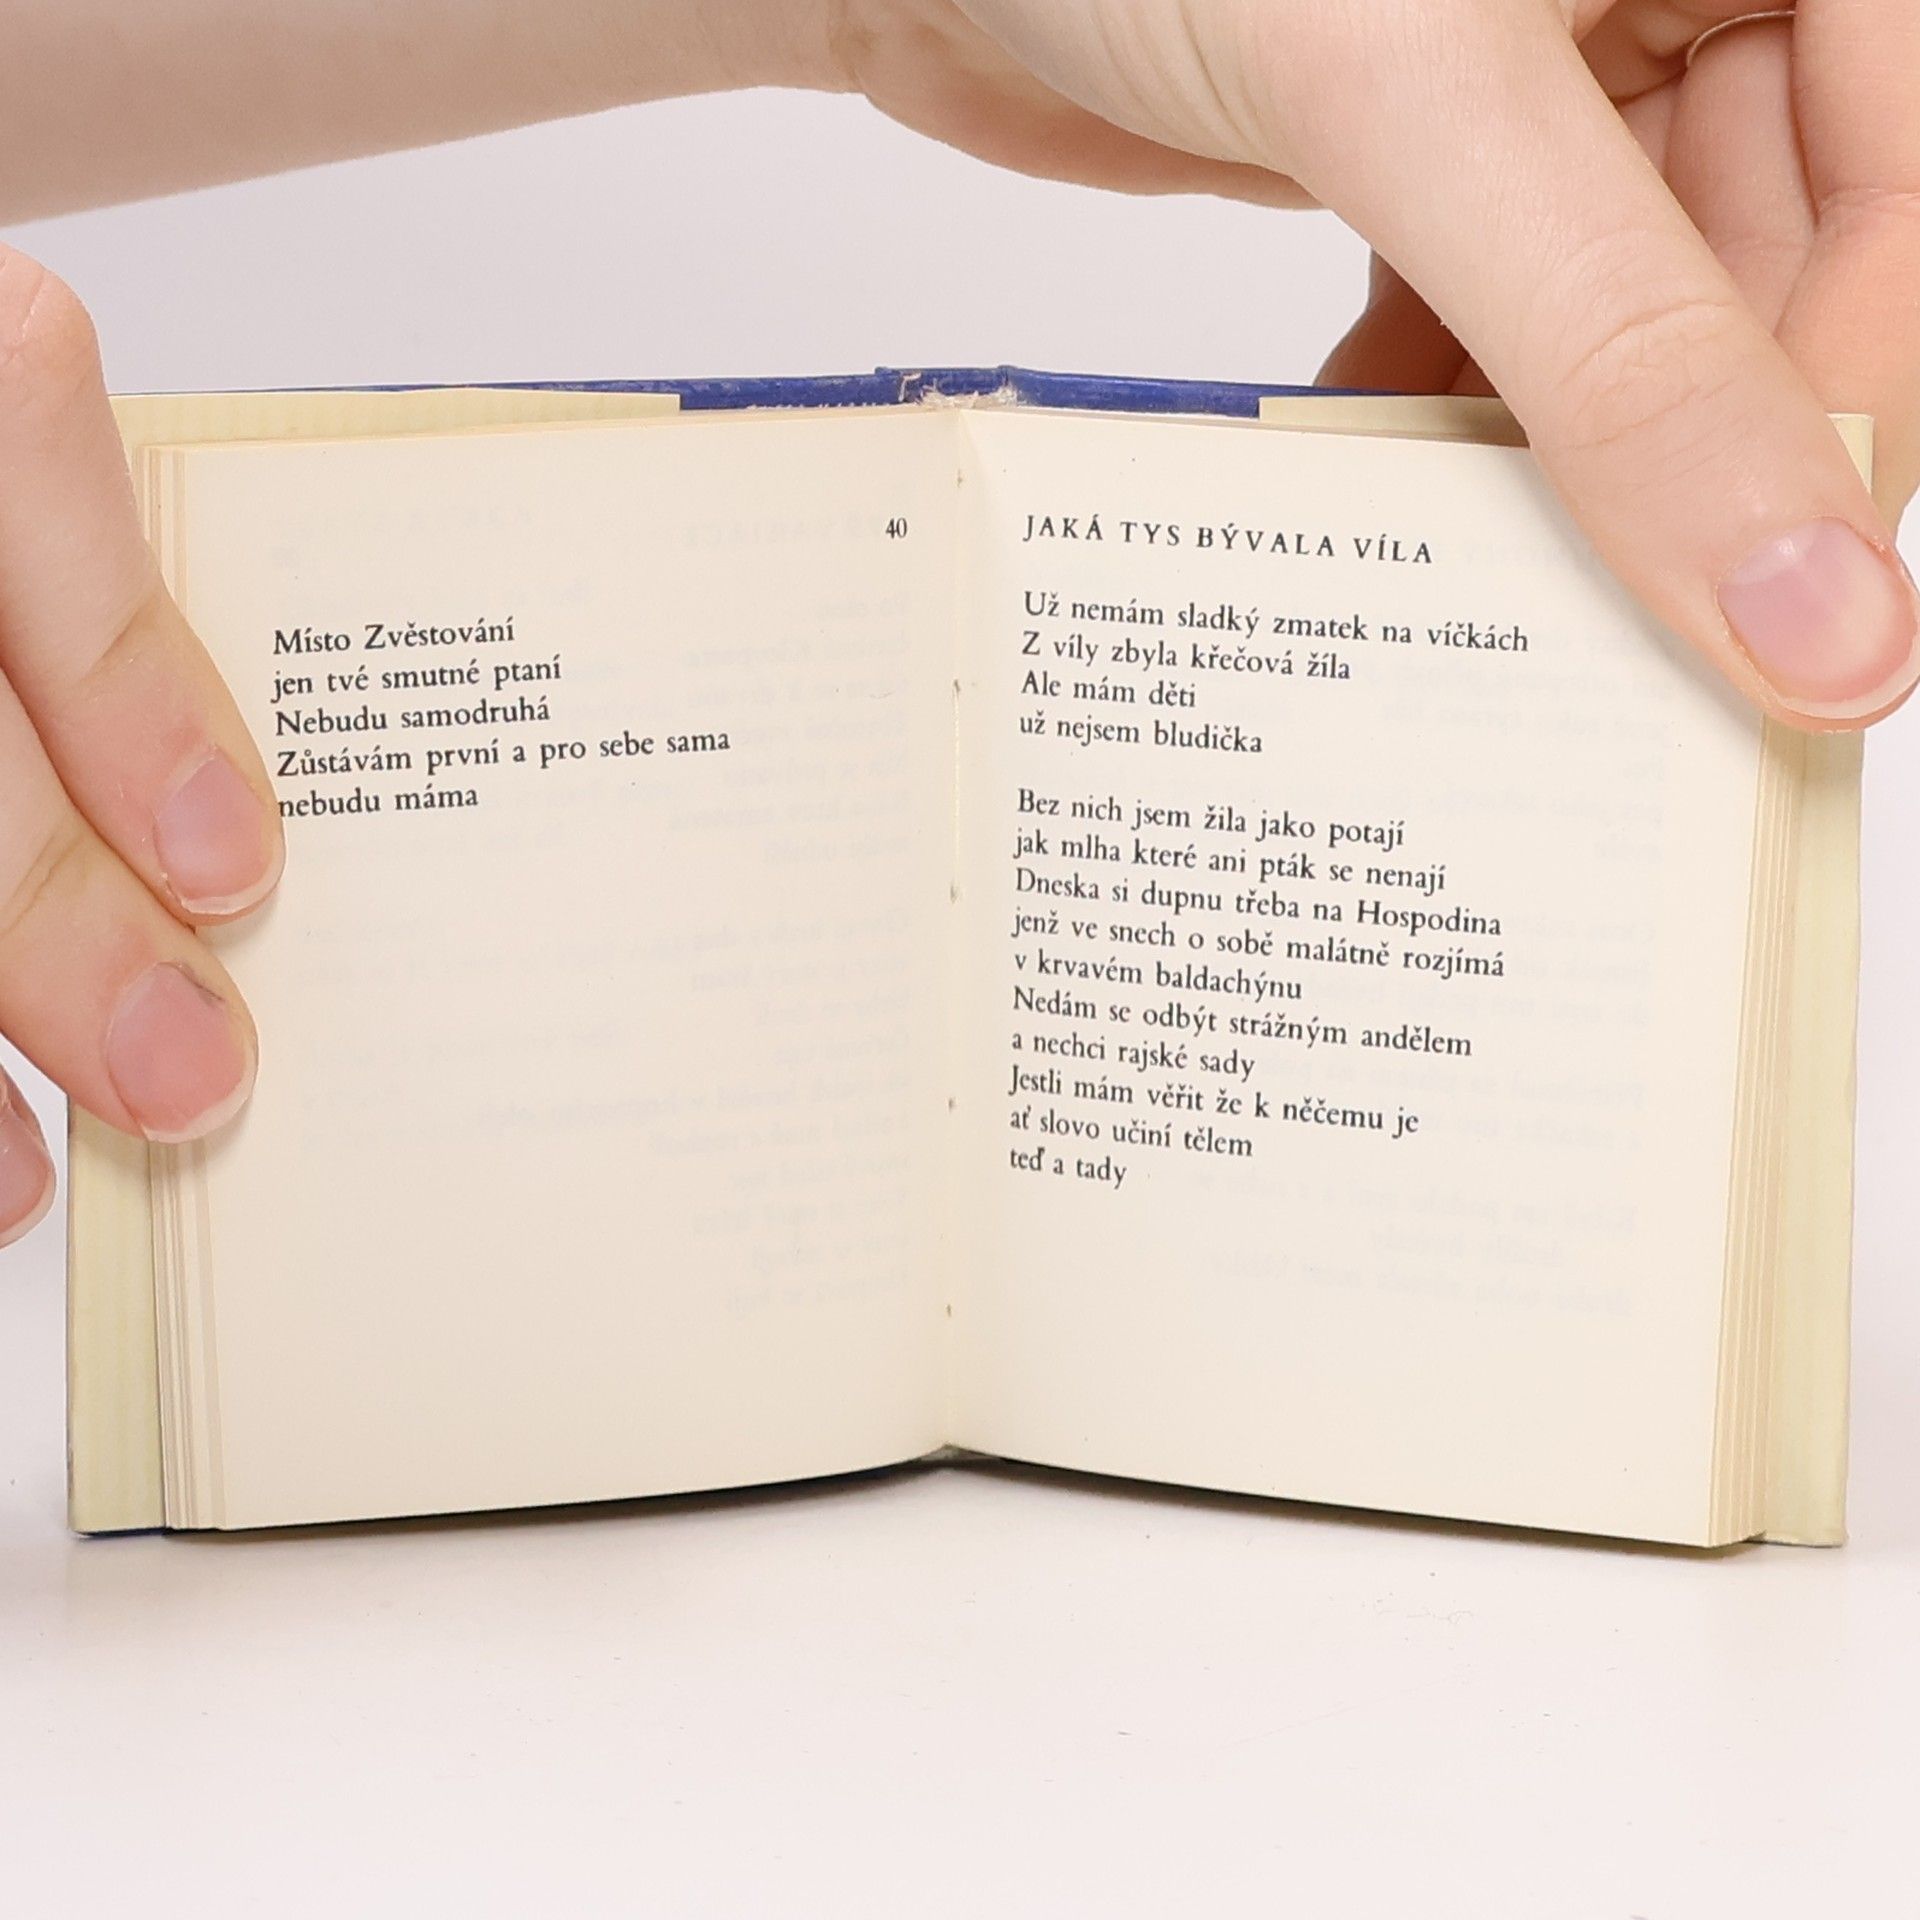 40
Místo Zvěstování
jen tvé smutné ptaní
Nebudu samodruhá
Zůstávám první a pro sebe sama
nebudu máma
JAKÁ TYS BÝVALA VÍLA
Už nemám sladký zmatek na víčkách
Z víly zbyla křečová žíla
Ale mám děti
už nejsem bludička
Bez nich jsem žila jako potají
jak mlha které ani pták se nenají
Dneska si dupnu třeba na Hospodina
jenž ve snech o sobě malátně rozjímá
v krvavém baldachýnu
Nedám se odbýt strážným andělem
a nechci rajské sady
Jestli mám věřit že k něčemu je
ať slovo učiní tělem
teď a tady